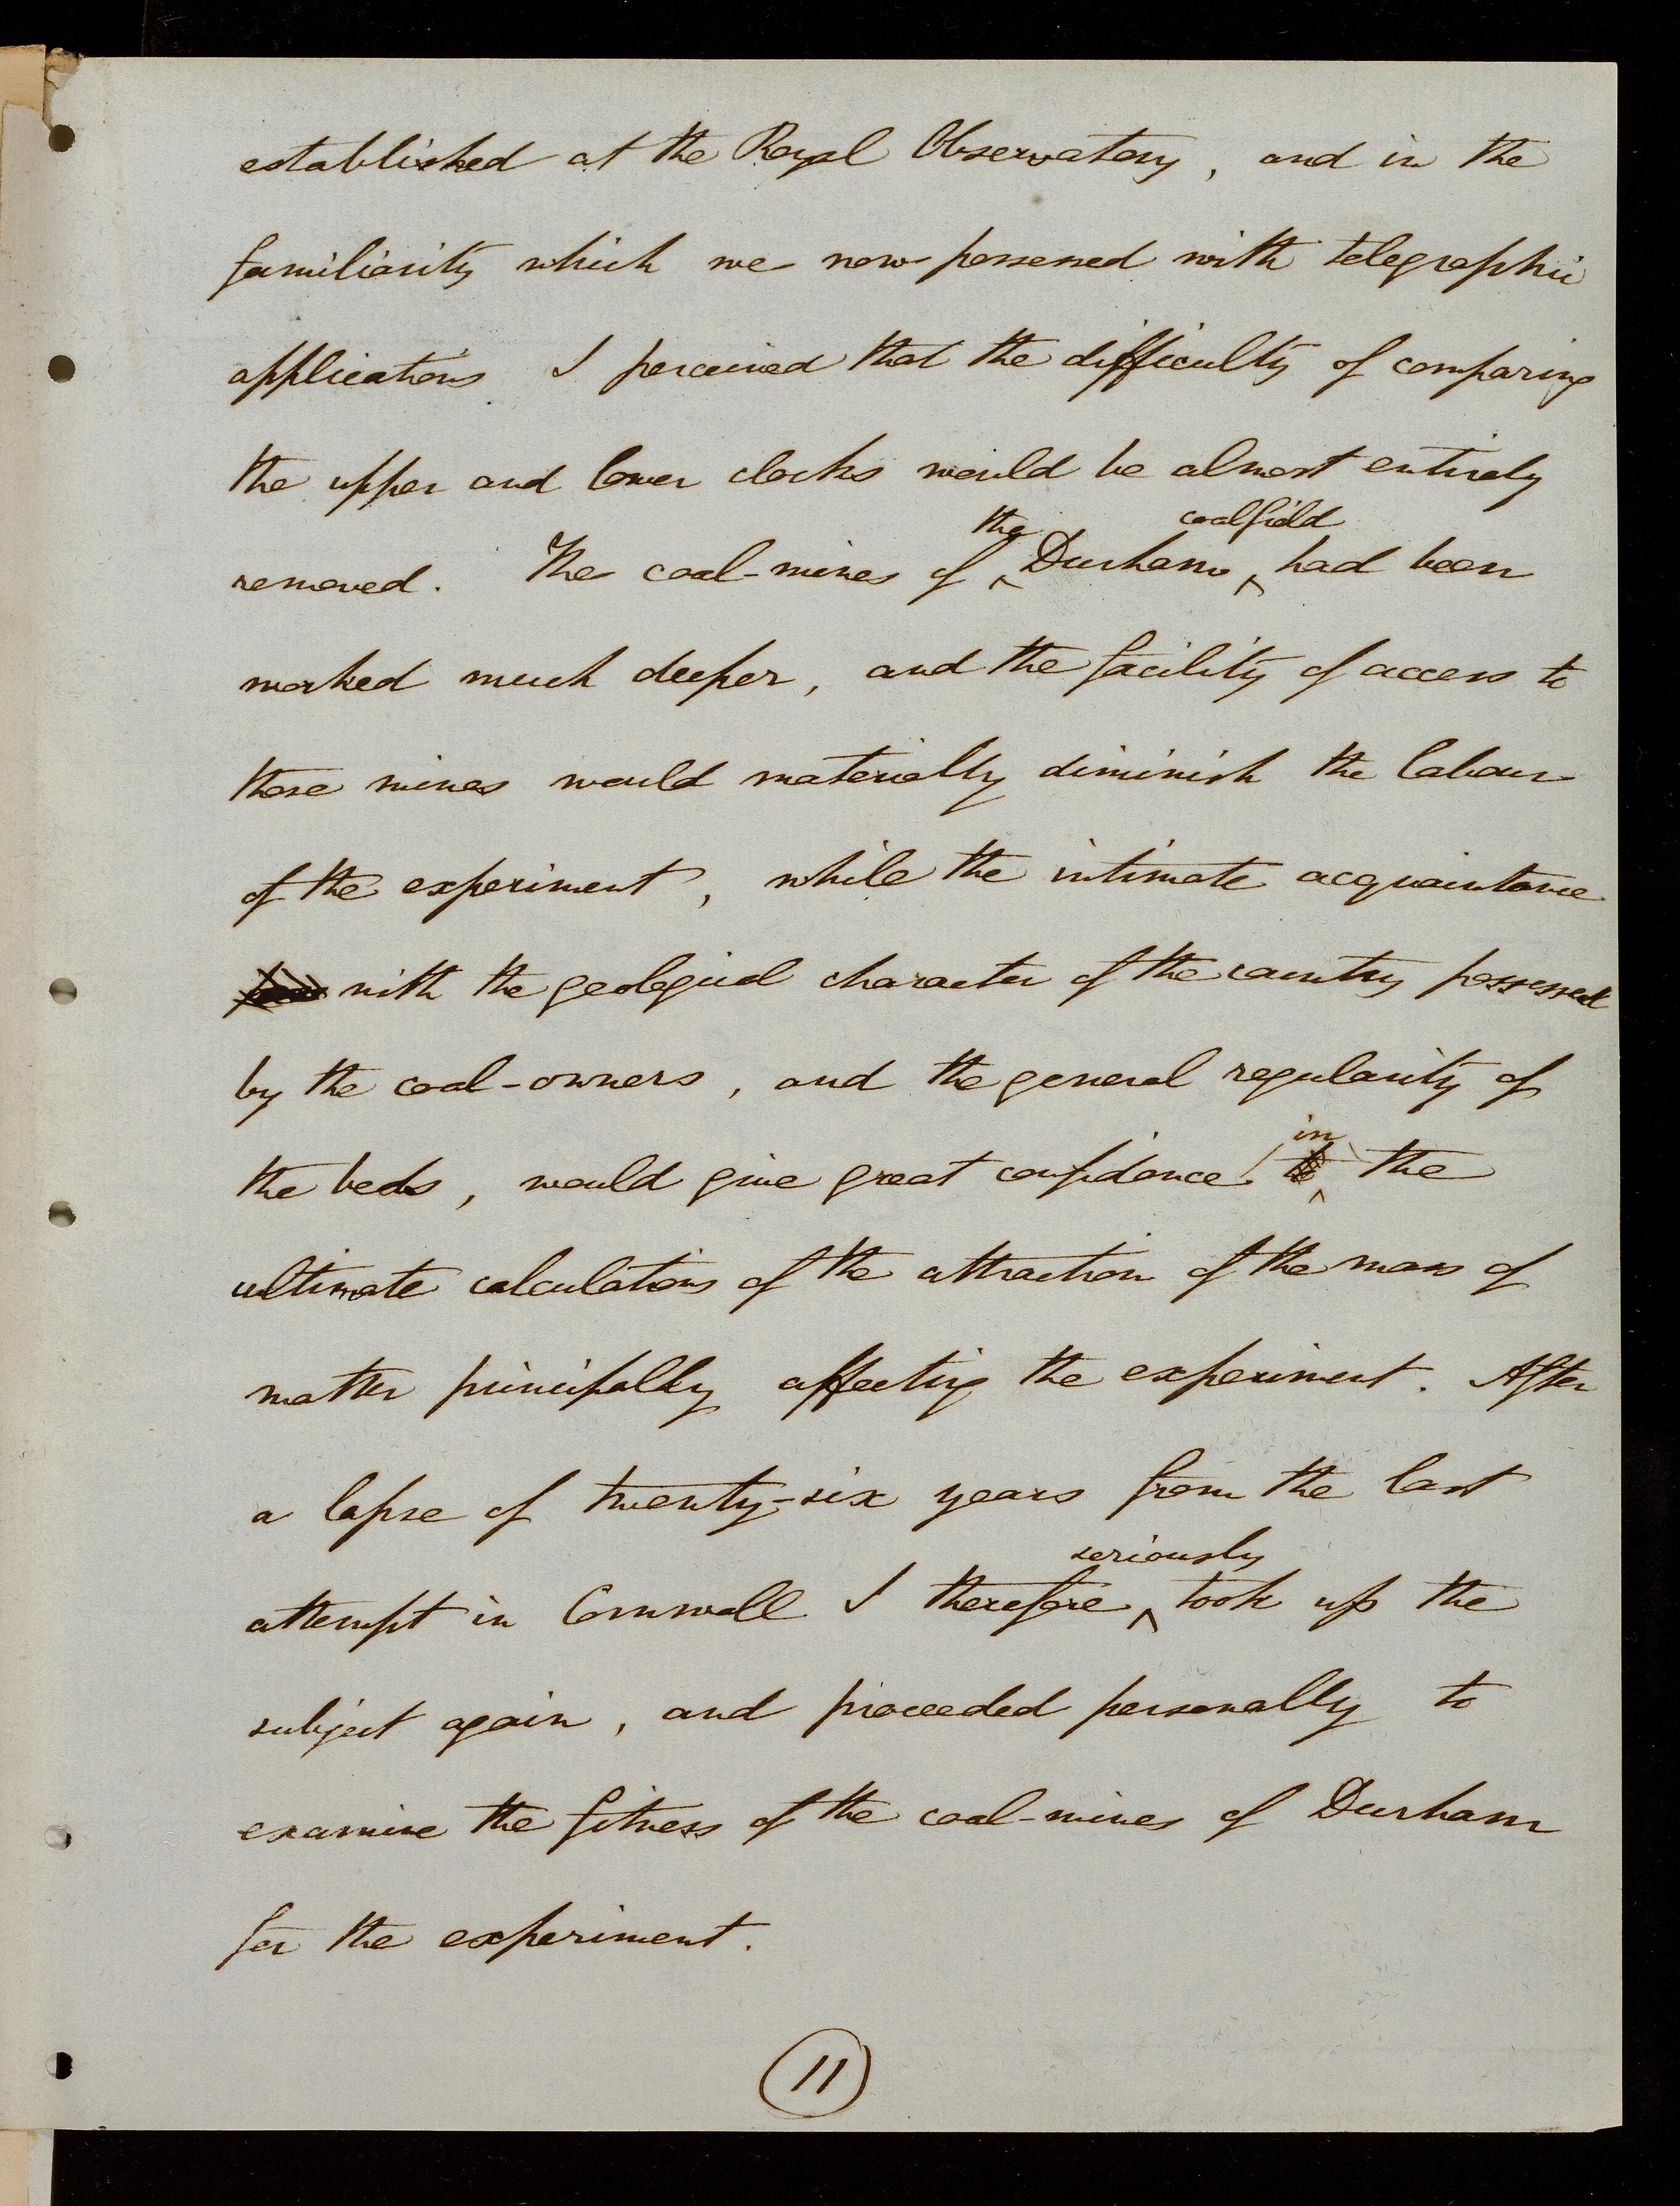 established at the Royal Observatory, and in the
familiarity which we now possessed with telegraphic
applications I perceived that the difficulty of comparing
the upper and lower clocks would be almost entirely
the coalfield
removed. The coal-mines of ‸ Durham ‸ had been
worked much deeper, and the facility of access to
those mines would materially diminish the labour
of the experiment, while the intimate acquaintance
with the geological character of the country possessed
by the coal-owners, and the general regularity of
in
the beds, would give great confidence ‸ the
ultimate calculations of the attraction of the mass of
matter principally affecting the experiment. After
a lapse of twenty-six years from the last
seriously
attempt in Cornwall I therefore ‸ took up the
subject again, and proceeded personally to
examine the fitness of the coal-mines of Durham
for the experiment.
11